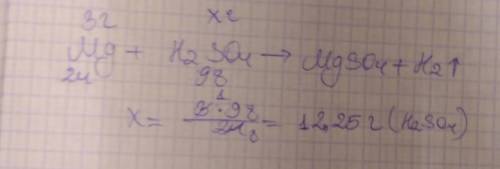 3г xг
Mg + H2SO4 → MgSO4 + H2↑
24 98
x = 3·98 / 24 = 12,25 г (H2SO4)
1 8